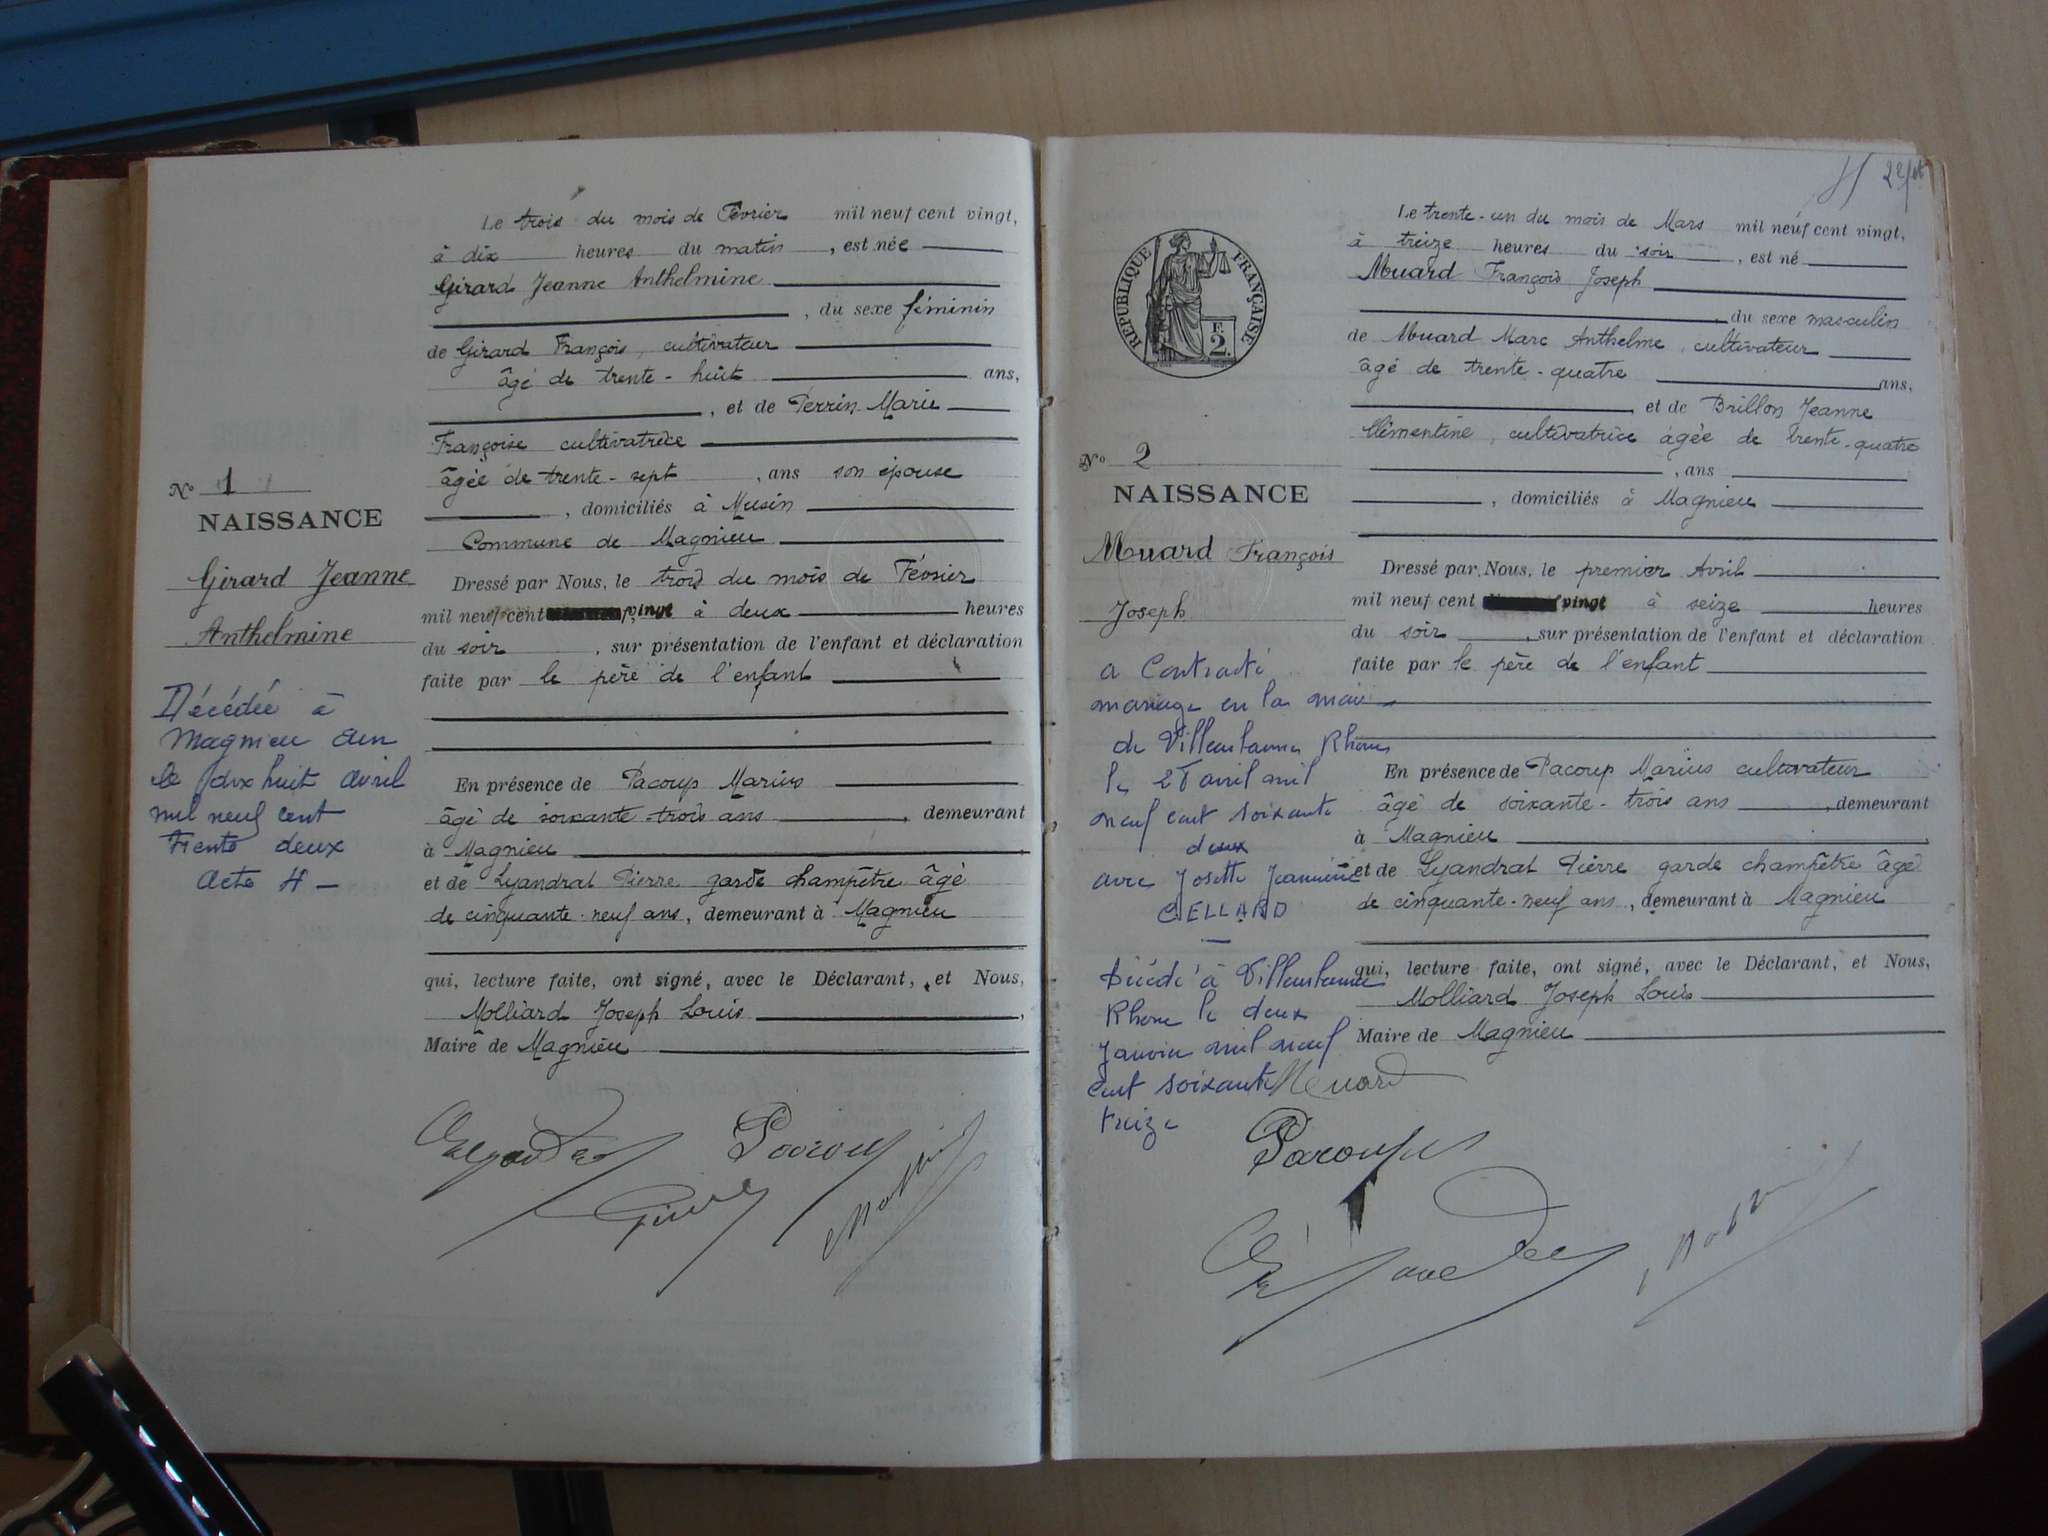 Le trois du mois de Février mil neuf cent vingt,
à dix heures du matin, est née
Girard Jeanne Anthelmine
, du sexe féminin
de Girard François, cultivateur
âgé de trente-huit ans,
, et de Perrin Marie
Françoise cultivatrice
âgée de trente-sept, ans son épouse
, domiciliés à Musin
Commune de Magnieu
Nº 1
NAISSANCE
Girard Jeanne
Anthelmine
Dressé par Nous, le trois du mois de Février
mil neuf cent vingt à deux heures
du soir, sur présentation de l'enfant et déclaration
faite par le père de l'enfant
Décédée à
Magnieu Ain
le dix huit avril
mil neuf cent
trente deux
Acte 4 -
En présence de Pacoup Marius
âgé de soixante-trois ans, demeurant
à Magnieu
et de Lyandrat Pierre garde champêtre âgé
de cinquante-neuf ans, demeurant à Magnieu
qui, lecture faite, ont signé, avec le Déclarant, et Nous,
Molliard Joseph Louis,
Maire de Magnieu
Le trente-un du mois de Mars mil neuf cent vingt,
à treize heures du soir, est né
Muard François Joseph
, du sexe masculin
de Muard Marc Anthelme, cultivateur
âgé de trente-quatre ans,
, et de Brillon Jeanne
Clémentine, cultivatrice âgée de trente-quatre
, ans
, domiciliés à Magnieu
RÉPUBLIQUE FRANÇAISE
F.
2.
Nº 2
NAISSANCE
Muard François
Joseph
Dressé par Nous, le premier Avril
mil neuf cent vingt à seize heures
du soir, sur présentation de l'enfant et déclaration
faite par le père de l'enfant
a Contracté
mariage en la mairie
de Villeurbanne Rhône
avril mil
neuf cent soixante
deux
avec Josette Jeannine
GELLARD
Décédé à Villeurbanne
Rhône le deux
Janvier mil neuf
cent soixante
treize
En présence de Pacoup Marius cultivateur
âgé de soixante-trois ans, demeurant
à Magnieu
et de Lyandrat Pierre garde champêtre âgé
de cinquante-neuf ans, demeurant à Magnieu
qui, lecture faite, ont signé, avec le Déclarant, et Nous,
Molliard Joseph Louis
Maire de Magnieu
Muard
Pacoup